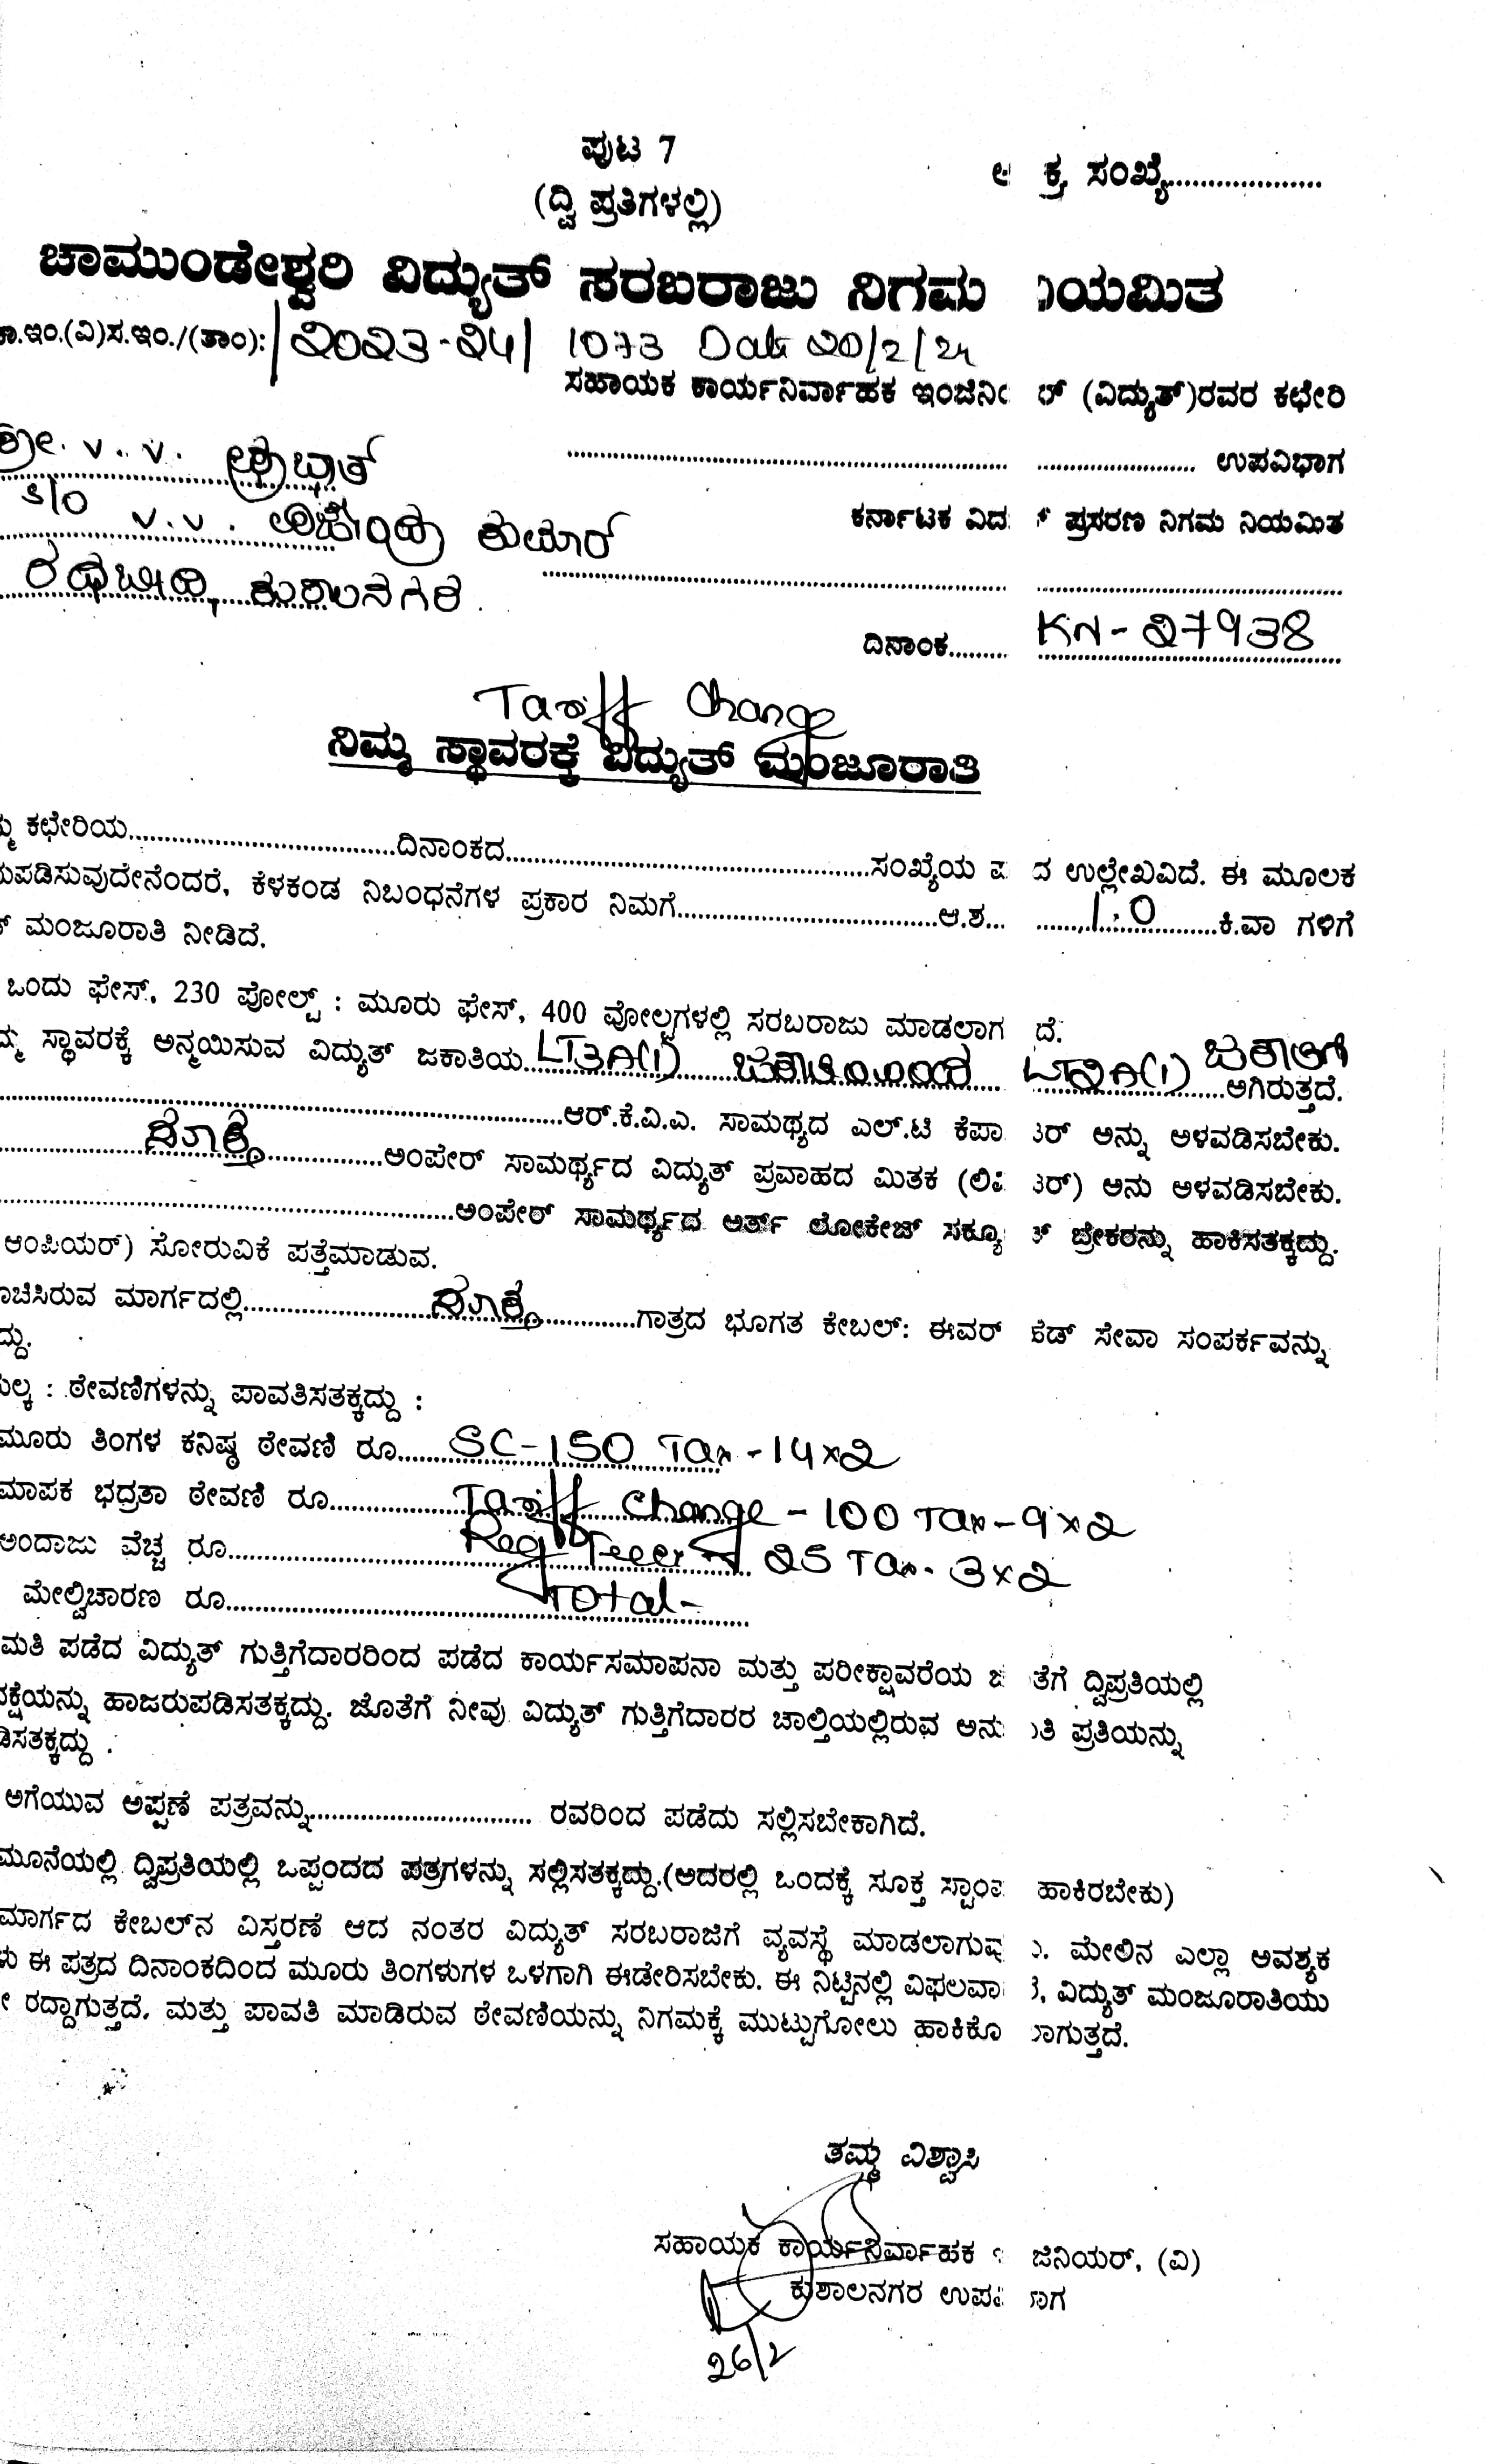 ಪುಟ 7
ಕ್ರ ಸಂಖ್ಯೆ....................
(ದ್ವಿ ಪ್ರತಿಗಳಲ್ಲಿ)
ಚಾಮುಂಡೇಶ್ವರಿ ವಿದ್ಯುತ್ ಸರಬರಾಜು ನಿಗಮ ಯಮಿತ
ಇಂ.(ವಿ)ಸ.ಇಂ./(ತಾಂ):/2023-24/ 1073 Date 20/2/24
ಸಹಾಯಕ ಕಾರ್ಯನಿರ್ವಾಹಕ ಇಂಜಿನಿ ರ್ (ವಿದ್ಯುತ್)ರವರ ಕಛೇರಿ
ಶ್ರೀ. v. v. ಪ್ರಭಾತ್
.................... ಉಪವಿಭಾಗ
S/o v.v. ಕುಮಾರ್
ಕರ್ನಾಟಕ ವಿದ ್ ಪ್ರಸರಣ ನಿಗಮ ನಿಯಮಿತ
ರಥಬೀದಿ, ಕುಶಾಲನಗರ.
ದಿನಾಂಕ......... KN-27938
Tariff Change
ನಿಮ್ಮ ಸ್ಥಾವರಕ್ಕೆ ವಿದ್ಯುತ್ ಮಂಜೂರಾತಿ
ಕಛೇರಿಯ....................ದಿನಾಂಕದ....................ಸಂಖ್ಯೆಯ ಪ ದ ಉಲ್ಲೇಖವಿದೆ. ಈ ಮೂಲಕ
ಪಡಿಸುವುದೇನೆಂದರೆ, ಕೆಳಕಂಡ ನಿಬಂಧನೆಗಳ ಪ್ರಕಾರ ನಿಮಗೆ....................ಆ.ಶ... 1.0 ..........ಕಿ.ವಾ ಗಳಿಗೆ
ಮಂಜೂರಾತಿ ನೀಡಿದೆ.
ಒಂದು ಫೇಸ್, 230 ವೋಲ್ಟ್ : ಮೂರು ಫೇಸ್, 400 ವೋಲ್ಟಗಳಲ್ಲಿ ಸರಬರಾಜು ಮಾಡಲಾಗ ದೆ.
ಸ್ಥಾವರಕ್ಕೆ ಅನ್ಮಯಿಸುವ ವಿದ್ಯುತ್ ಜಕಾತಿಯ....LT3A(1) ಜಕಾತಿಯಿಂದ LT2A(1) ಜಕಾತಿಗೆ ......ಆಗಿರುತ್ತದೆ.
....................ಆರ್.ಕೆ.ವಿ.ಎ. ಸಾಮಥ್ಯದ ಎಲ್.ಟಿ ಕೆಪಾ ಟರ್ ಅನ್ನು ಅಳವಡಿಸಬೇಕು.
..........ಸೂಕ್ತ..........ಅಂಪೇರ್ ಸಾಮರ್ಥ್ಯದ ವಿದ್ಯುತ್ ಪ್ರವಾಹದ ಮಿತಕ (ಲಿಮಿ ಟರ್) ಅನು ಅಳವಡಿಸಬೇಕು.
....................ಅಂಪೇರ್ ಸಾಮರ್ಥ್ಯದ ಅರ್ತ್ ಲೋಕೇಜ್ ಸರ್ಕ್ಯೂ ಟ್ ಬ್ರೇಕರನ್ನು ಹಾಕಿಸತಕ್ಕದ್ದು.
ಆಂಪಿಯರ್) ಸೋರುವಿಕೆ ಪತ್ತೆಮಾಡುವ.
ಚಿಸಿರುವ ಮಾರ್ಗದಲ್ಲಿ....................ಸೂಕ್ತ..........ಗಾತ್ರದ ಭೂಗತ ಕೇಬಲ್: ಈವರ್ ಹೆಡ್ ಸೇವಾ ಸಂಪರ್ಕವನ್ನು
ದ್ದು.
ಲ್ಕ : ಠೇವಣಿಗಳನ್ನು ಪಾವತಿಸತಕ್ಕದ್ದು :
ಮೂರು ತಿಂಗಳ ಕನಿಷ್ಠ ಠೇವಣಿ ರೂ...... SC-150 Tax-14x2
ಮಾಪಕ ಭದ್ರತಾ ಠೇವಣಿ ರೂ.............. Tariff Change - 100 Tax-9x2
ಅಂದಾಜು ವೆಚ್ಚ ರೂ.................... Reg 25 Tax. 3x2
ಮೇಲ್ವಿಚಾರಣ ರೂ.................... Total-
ಮತಿ ಪಡೆದ ವಿದ್ಯುತ್ ಗುತ್ತಿಗೆದಾರರಿಂದ ಪಡೆದ ಕಾರ್ಯಸಮಾಪನಾ ಮತ್ತು ಪರೀಕ್ಷಾವರೆಯ ಜ ತೆಗೆ ದ್ವಿಪ್ರತಿಯಲ್ಲಿ
ಕ್ಷೆಯನ್ನು ಹಾಜರುಪಡಿಸತಕ್ಕದ್ದು. ಜೊತೆಗೆ ನೀವು ವಿದ್ಯುತ್ ಗುತ್ತಿಗೆದಾರರ ಚಾಲ್ತಿಯಲ್ಲಿರುವ ಅನು ತಿ ಪ್ರತಿಯನ್ನು
ಡಿಸತಕ್ಕದ್ದು .
ಅಗೆಯುವ ಅಪ್ಪಣೆ ಪತ್ರವನ್ನು.................... ರವರಿಂದ ಪಡೆದು ಸಲ್ಲಿಸಬೇಕಾಗಿದೆ.
ಮೂನೆಯಲ್ಲಿ ದ್ವಿಪ್ರತಿಯಲ್ಲಿ ಒಪ್ಪಂದದ ಪತ್ರಗಳನ್ನು ಸಲ್ಲಿಸತಕ್ಕದ್ದು.(ಅದರಲ್ಲಿ ಒಂದಕ್ಕೆ ಸೂಕ್ತ ಸ್ಟಾಂಪ ಹಾಕಿರಬೇಕು)
ಮಾರ್ಗದ ಕೇಬಲ್‌ನ ವಿಸ್ತರಣೆ ಆದ ನಂತರ ವಿದ್ಯುತ್ ಸರಬರಾಜಿಗೆ ವ್ಯವಸ್ಥೆ ಮಾಡಲಾಗುವು . ಮೇಲಿನ ಎಲ್ಲಾ ಅವಶ್ಯಕ
ಈ ಪತ್ರದ ದಿನಾಂಕದಿಂದ ಮೂರು ತಿಂಗಳುಗಳ ಒಳಗಾಗಿ ಈಡೇರಿಸಬೇಕು. ಈ ನಿಟ್ಟಿನಲ್ಲಿ ವಿಫಲವಾ , ವಿದ್ಯುತ್ ಮಂಜೂರಾತಿಯು
ರದ್ದಾಗುತ್ತದೆ. ಮತ್ತು ಪಾವತಿ ಮಾಡಿರುವ ಠೇವಣಿಯನ್ನು ನಿಗಮಕ್ಕೆ ಮುಟ್ಟುಗೋಲು ಹಾಕಿಕೊ ಾಗುತ್ತದೆ.
ತಮ್ಮ ವಿಶ್ವಾಸಿ
ಸಹಾಯಕ ಕಾರ್ಯನಿರ್ವಾಹಕ ಜಿನಿಯರ್, (ವಿ)
ಕುಶಾಲನಗರ ಉಪವಿ ಾಗ
26/2